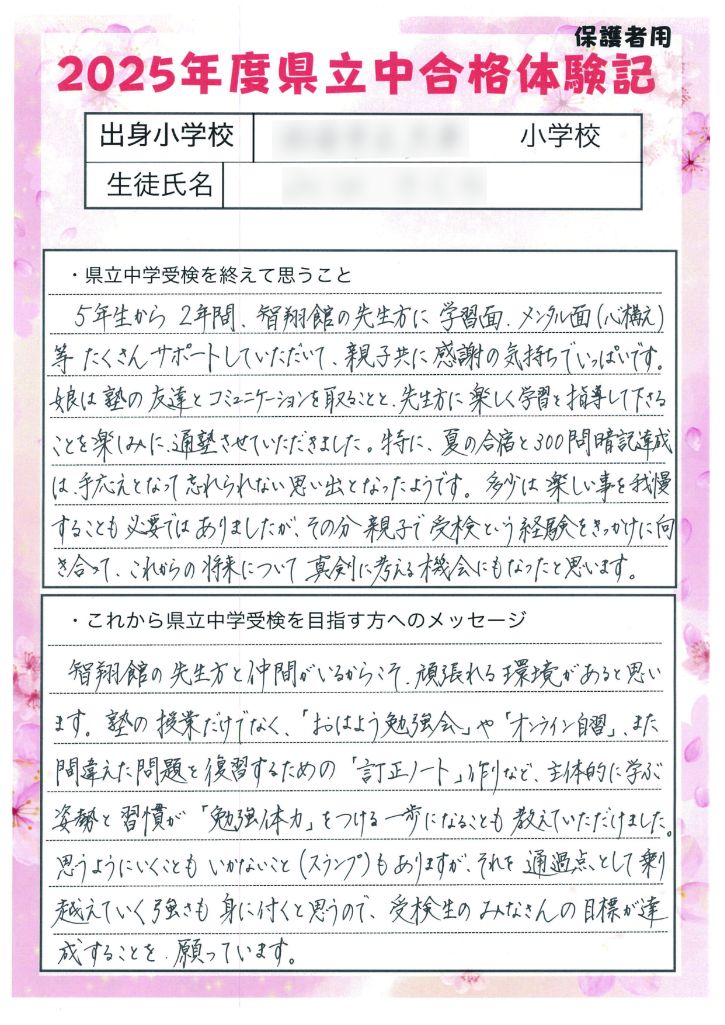 保護者用
2025年度県立中合格体験記
出身小学校 小学校
生徒氏名
・県立中学受検を終えて思うこと
5年生から2年間、智翔館の先生方に学習面、メンタル面(心構え)
等たくさんサポートしていただいて、親子共に感謝の気持ちでいっぱいです。
娘は塾の友達とコミュニケーションを取ることと、先生方に楽しく学習を指導して下さる
ことを楽しみに、通塾させていただきました。特に、夏の合宿と300問暗記達成
は、手応えとなって忘れられない思い出となったようです。多少は楽しい事を我慢
することも必要ではありましたが、その分親子で受検という経験をきっかけに向
き合って、これからの将来について真剣に考える機会にもなったと思います。
・これから県立中学受検を目指す方へのメッセージ
智翔館の先生方と仲間がいるからこそ、頑張れる環境があると思い
ます。塾の授業だけでなく、「おはよう勉強会」や「オンライン自習」、また
間違えた問題を復習するための「訂正ノート」作りなど、主体的に学ぶ
姿勢と習慣が「勉強体力」をつける一歩になることも教えていただけました。
思うようにいくこともいかないこと(スランプ)もありますが、それを通過点、として乗り
越えていく強さも身に付くと思うので、受検生のみなさんの目標が達
成することを、願っています。